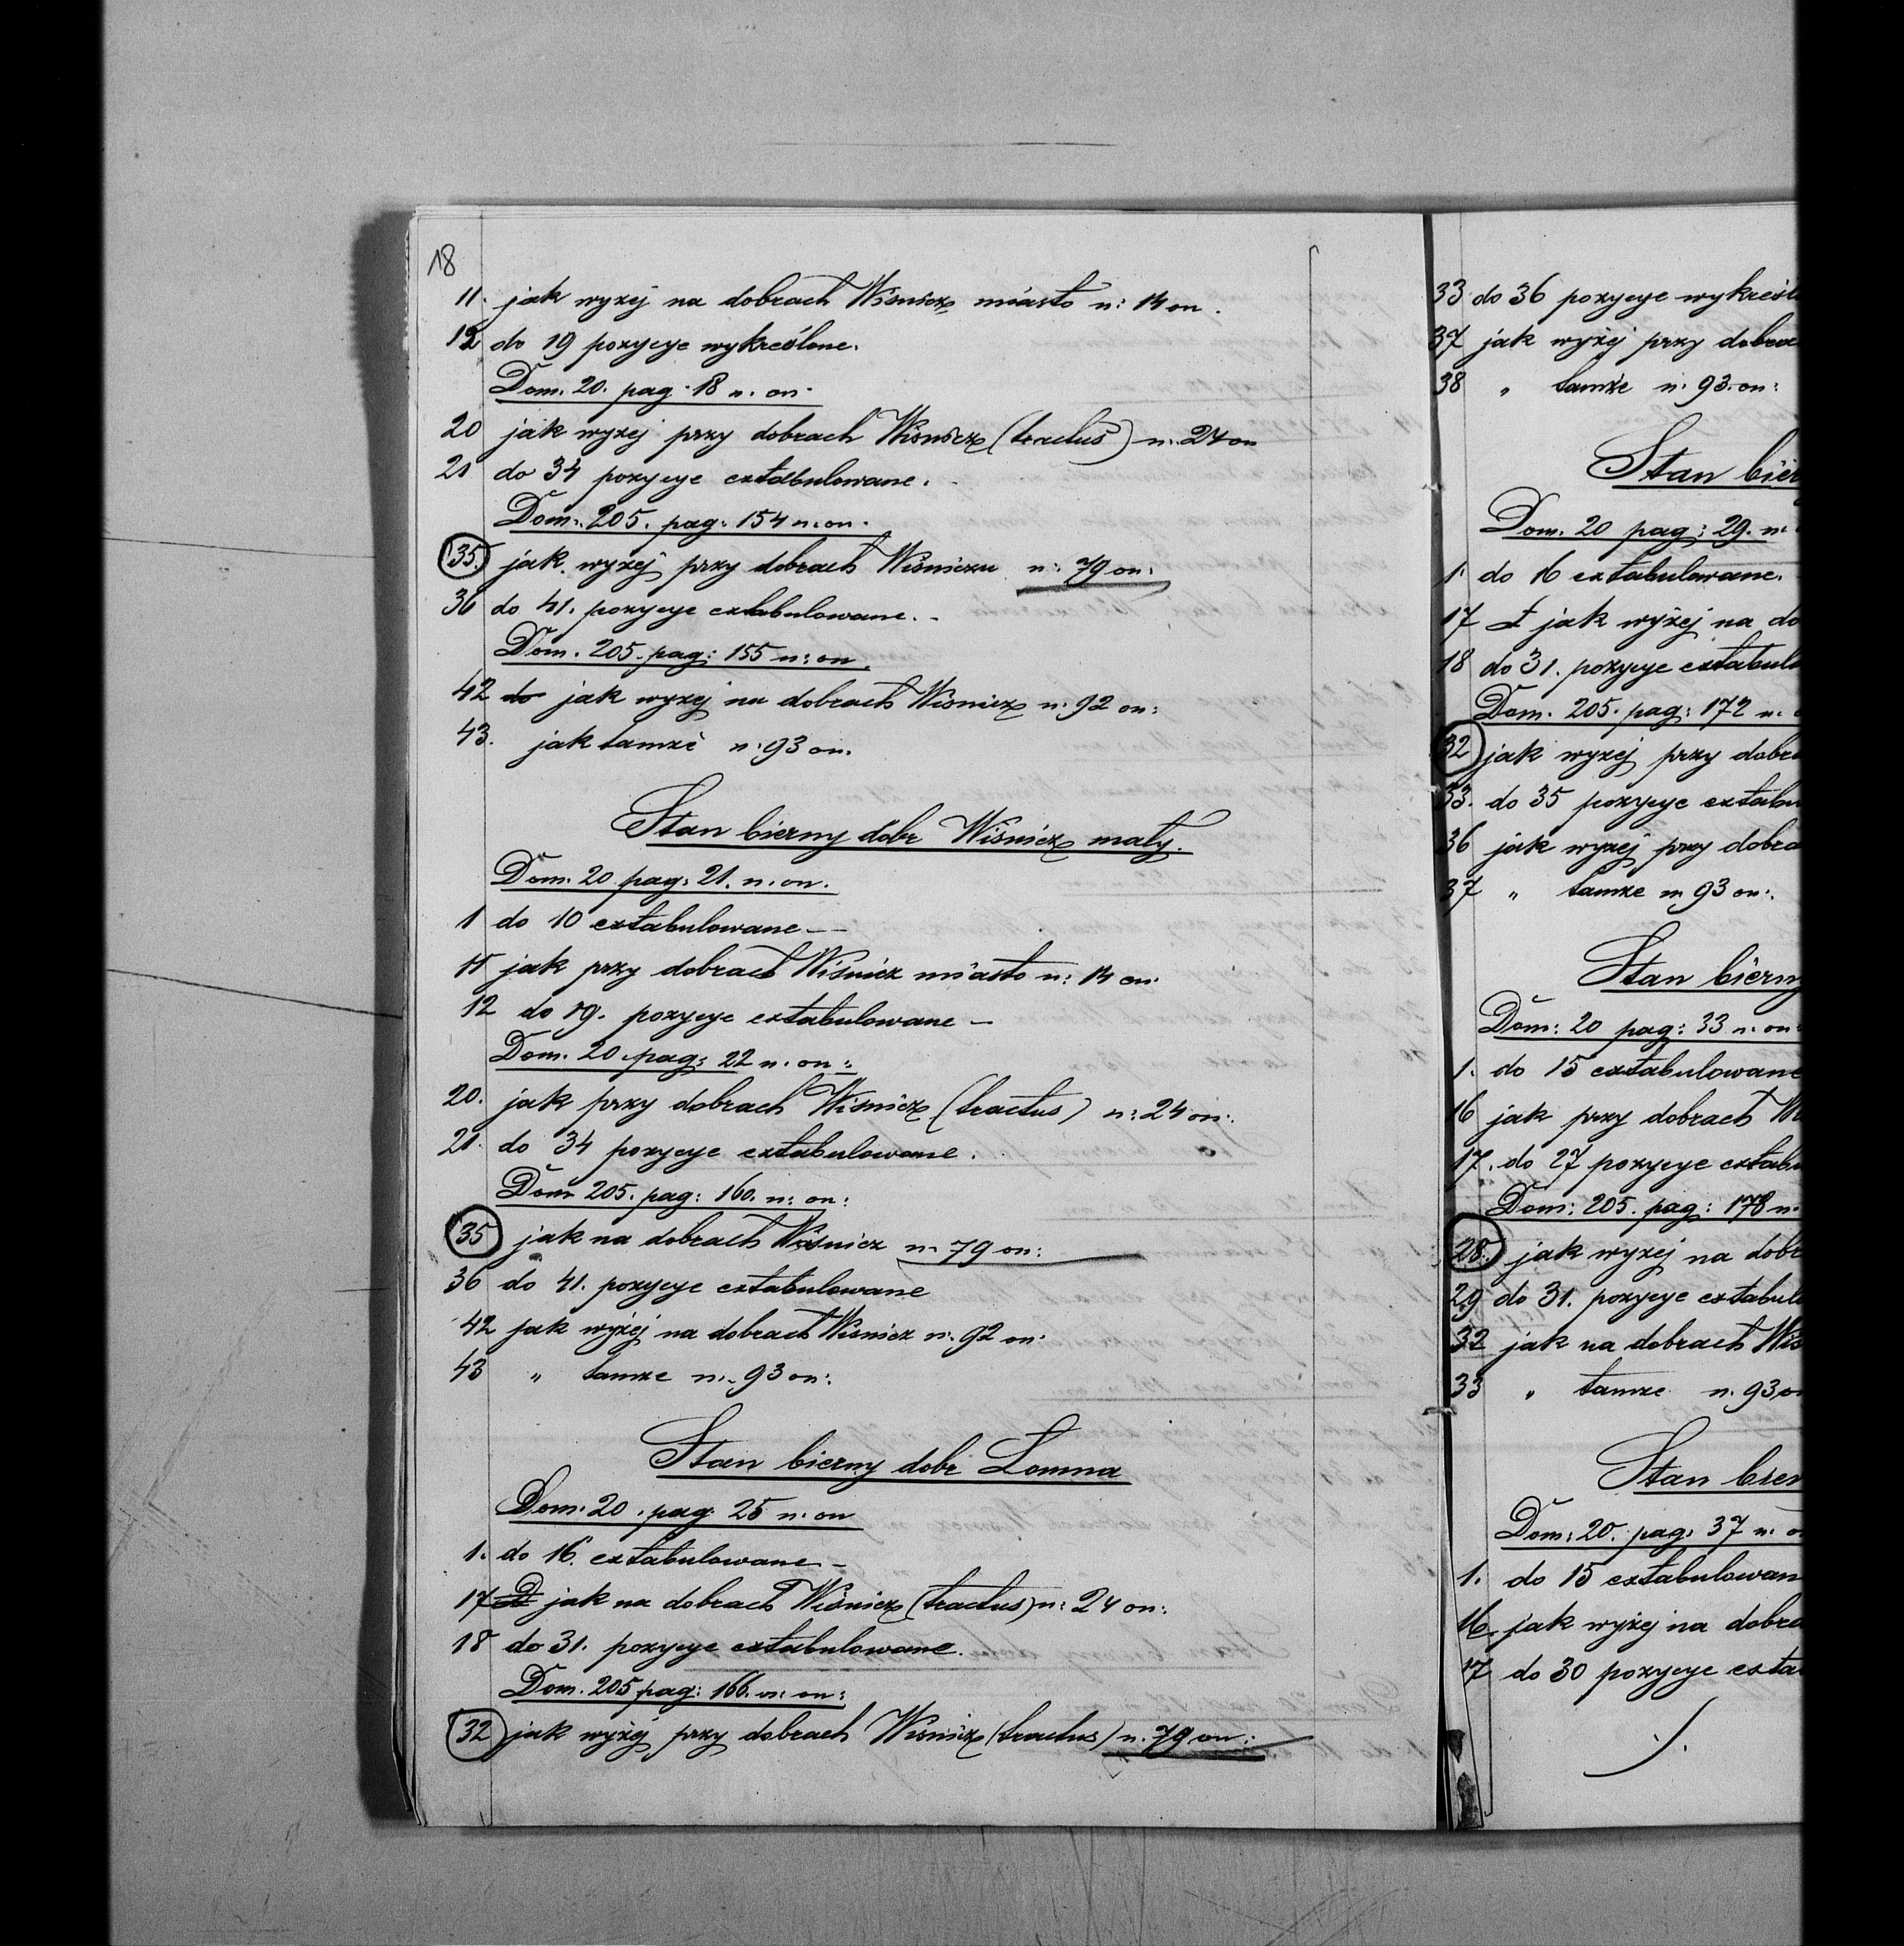 18
11. jak wyżej na dobrach Wiśnicz miasto n: 14 on.
12 do 19 pozycye wykreślone.
Dom. 20. pag. 18 n. on.
20 jak wyżej przy dobrach Wiśnicz (tractus) n. 24 on
21 do 34 pozycye extabulowane.
Dom. 205. pag. 154 n. on.
35. jak wyżej przy dobrach Wiśniczu n: 79 on:
36 do 41. pozycye extabulowane.
Dom. 205. pag: 155 n: on.
42 do jak wyżej na dobrach Wiśnicz n. 92 on:
43. jak tamże n: 93 on.
Stan bierny dobr Wiśnicz mały.
Dom. 20 pag: 21. n. on.
1 do 10 extabulowane —
11 jak przy dobrach Wiśnicz miasto n: 14 on.
12 do 19. pozycye extabulowane —
Dom. 20. pag: 22 n. on:
20. jak przy dobrach Wiśnicz (tractus) n: 24 on:
21. do 34 pozycye extabulowane.
Dom 205. pag: 160. n: on:
35 jak na dobrach Wiśnicz n. 79 on:
36 do 41. pozycye extabulowane
42 jak wyżej na dobrach Wiśnicz n. 92 on:
43 „ tamże n. 93 on:
Stan bierny dobr Łomna
Dom. 20. pag. 25 n: on
1. do 16. extabulowane —
17 D jak na dobrach Wiśnicz (tractus) n: 24 on:
18 do 31. pozycye extabulowane.
Dom. 205 pag: 166. n: on:
32 jak wyżej przy dobrach Wiśnicz (tractus) n. 79 on:
33 do 36 pozycye wykreśl
37 jak wyżej przy dobra
38 „ tamże n. 93. on:
Stan bier
Dom. 20 pag: 29. n.
1. do 16 extabulowane.
17 jak wyżej na do
18 do 31. pozycye extabul
Dom. 205. pag: 172 n.
32 jak wyżej przy dobr
33. do 35 pozycye extabu
36 jak wyżej przy dobra
37 „ tamże n. 93 on:
Stan bierny
Dom: 20 pag: 33 n. on
1. do 15 extabulowane
16 jak przy dobrach Wi
17. do 27 pozycye extabu
Dom: 205. pag: 178 n.
28. jak wyżej na dobr
29 do 31. pozycye extabul
32 jak na dobrach Wiś
33 „ tamże n. 93 on
Stan bier
Dom: 20. pag: 37 n. o
1. do 15 extabulowan
16. jak wyżej na dobra
17 do 30 pozycye exta
./.